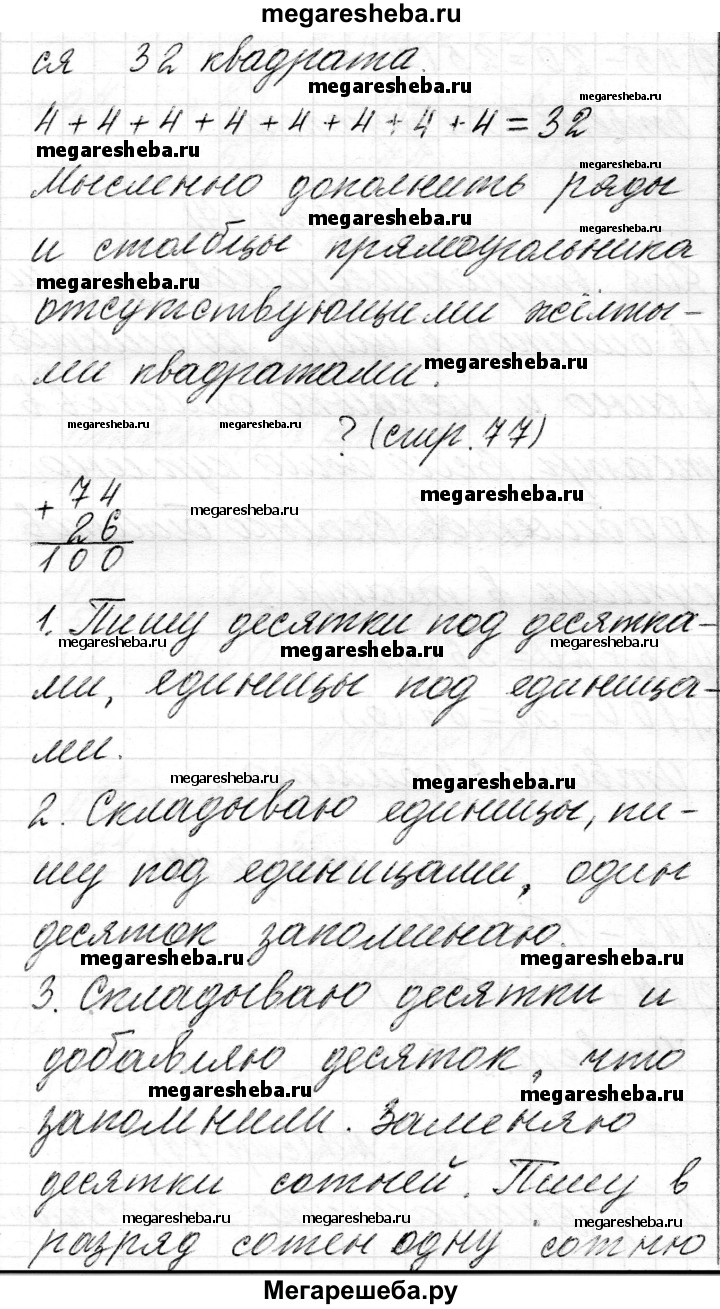 megaresheba.ru
ся 32 квадрата.
megaresheba.ru
megaresheba.ru
4+4+4+4+4+4+4+4=32
megaresheba.ru
megaresheba.ru
Мысленно дополнить ряды
megaresheba.ru
megaresheba.ru
и столбцы прямоугольника
megaresheba.ru
отсутствующими жёлты-
ми квадратами.
megaresheba.ru
megaresheba.ru
megaresheba.ru
? (стр. 77)
+ 74
megaresheba.ru
megaresheba.ru
26
100
1. Пишу десятки под десятка-
megaresheba.ru
megaresheba.ru
megaresheba.ru
ми, единицы под единица-
ми.
megaresheba.ru
megaresheba.ru
2. Складываю единицы, пи-
шу под единицами, один
десяток запоминаю.
megaresheba.ru
megaresheba.ru
3. Складываю десятки и
добавляю десяток, что
megaresheba.ru
megaresheba.ru
запомнили. Заменяю
десятки сотней. Пишу в
megaresheba.ru
megaresheba.ru
megaresheba.ru
разряд сотен одну сотню
Мегарешеба.ру